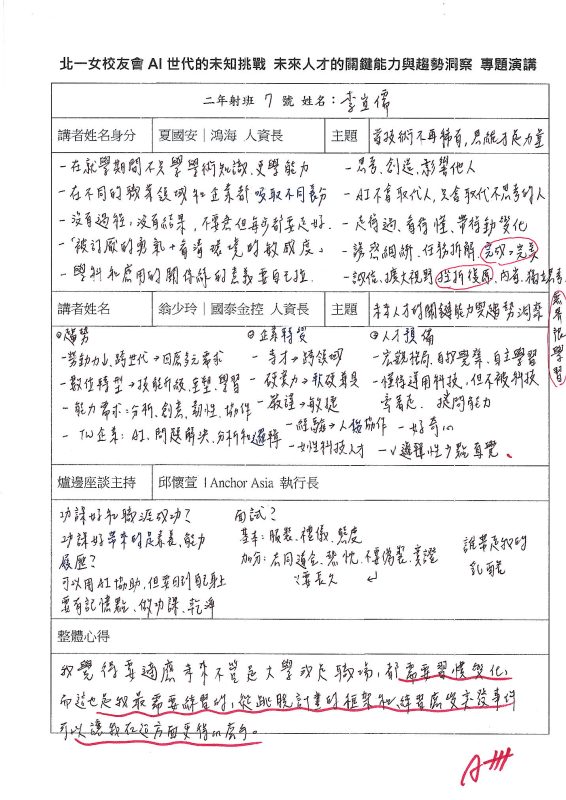 北一女校友會 AI 世代的未知挑戰 未來人才的關鍵能力與趨勢洞察 專題演講
二年射班 7 號 姓名：李宜儒
講者姓名身分 夏國安｜鴻海 人資長 主題 當技術不再稀有，思維才是力量
- 在就學期間不只學學術知識，更學能力
- 在不同的職業領域和企業都吸取不同長分
- 沒有過程，沒有結果，不要急但每步都要走好。
- 「被討厭的勇氣＋看清環境的敏感度」
- 學科和應用的關係的意義要自己找
- 思考、創造、影響他人
- AI不會取代人，只會取代不思考的人
- 走得過、看得懂、帶得動變化
任務拆解，完成＞完美
- 誠信、擴大視野、挫折復原、內省、獨立思考
跨界混學習
講者姓名身分 翁少玲｜國泰金控 人資長 主題 未來人才的關鍵能力與趨勢洞察
◎趨勢
- 勞動力↓、跨世代→回應多元需求
- 數位轉型→技能升級、重塑、學習
- 能力需求：分析、創意、韌性、協作
- TW企業：AI、問題解決、分析和邏輯
◎企業轉變
- 專才→跨領域
- 硬實力→軟硬兼具
- 嚴謹→敏捷
- 經驗→人機協作
- 女性科技人才
◎人才預備
- 宏觀格局、自我覺察、自主學習
- 懂得運用科技，但不被科技
牽著走、提問能力
- 好奇心
- 邏輯性少點直覺。
爐邊座談主持 邱懷萱｜Anchor Asia 執行長
功課好和職涯成功？
功課好帶來的是養長、能力
履歷？
可以用AI協助，但要回到自己身上
要有記憶點、做功課、乾淨
面試？
基本：服裝、禮儀、態度
加分：志同道合、熱忱、不要偽裝、實證
誰帶走我的
乳酪
整體心得
我覺得要適應未來不管是大學或是職場，都需要習慣變化，
而這也是我最需要練習的，從跳脫計畫的框架和練習處變突發事件
可以讓我在這方面更得心應手。
A+++